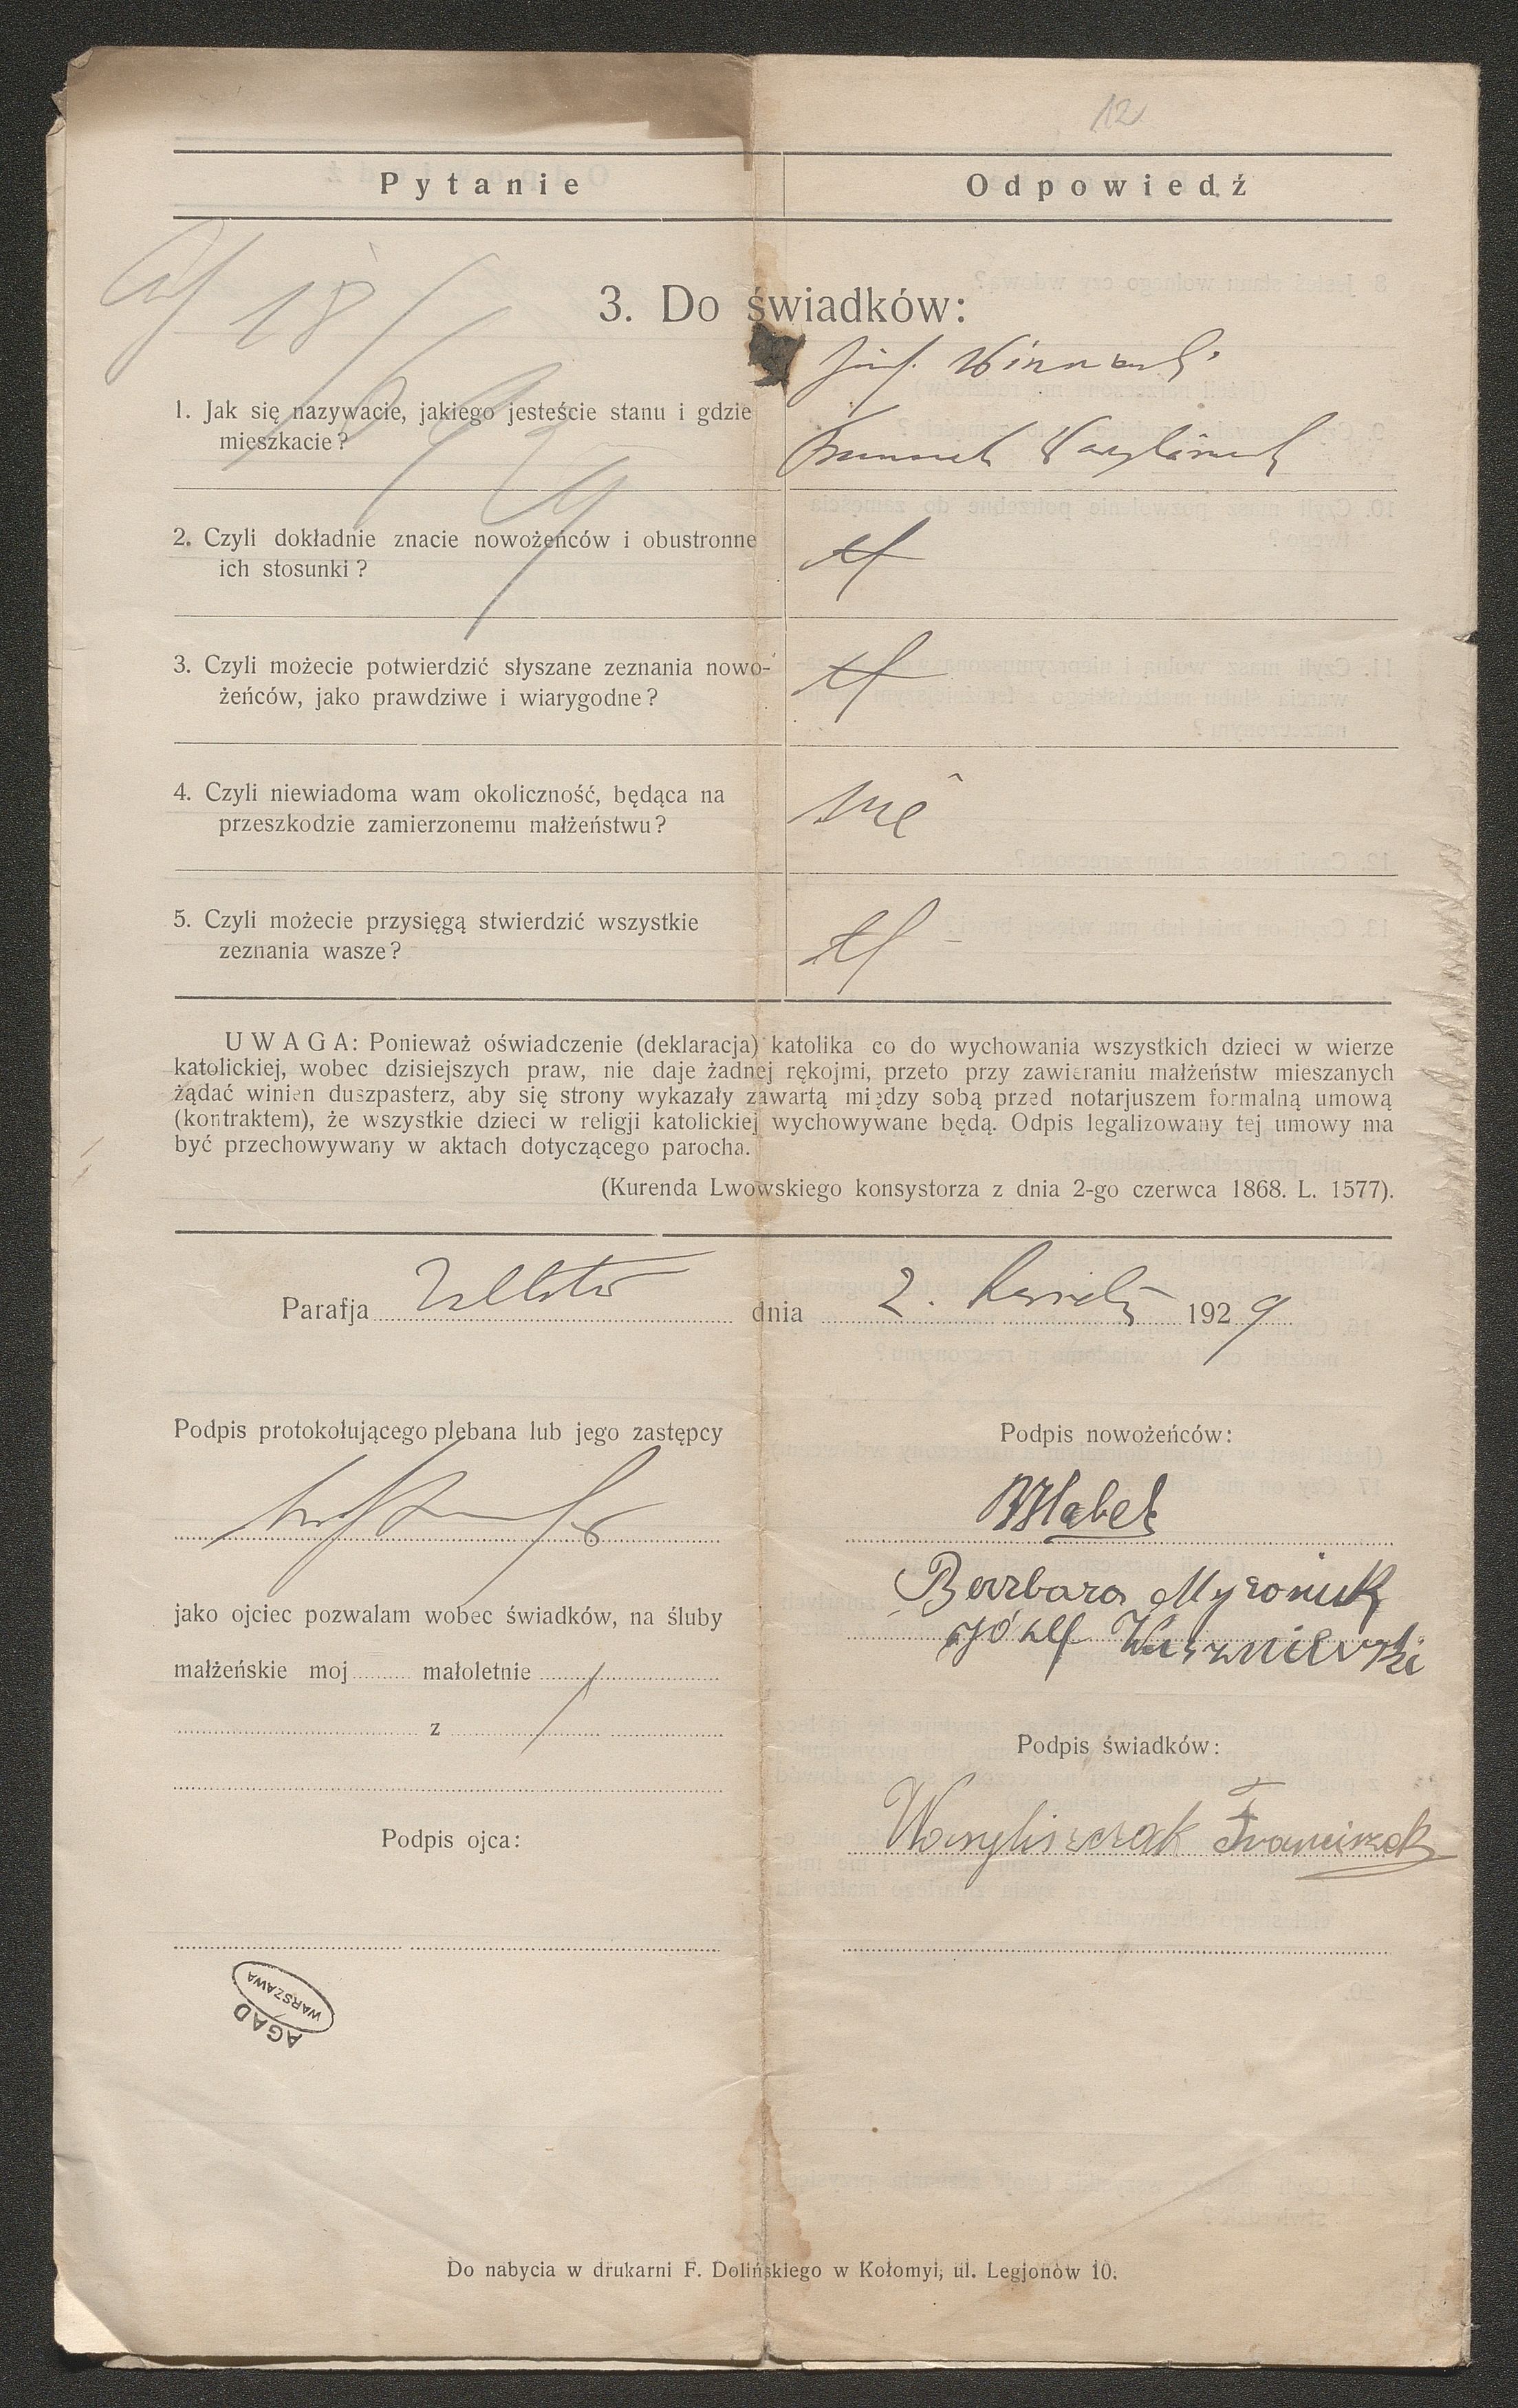 12
Pytanie
Odpowiedź
18/
3. Do świadków:
1. Jak się nazywacie, jakiego jesteście stanu i gdzie
mieszkacie?
2. Czyli dokładnie znacie nowożeńców i obustronne
ich stosunki?
3. Czyli możecie potwierdzić słyszane zeznania nowo-
żeńców, jako prawdziwe i wiarygodne?
4. Czyli niewiadoma wam okoliczność, będąca na
przeszkodzie zamierzonemu małżeństwu?
nie
5. Czyli możecie przysięgą stwierdzić wszystkie
zeznania wasze?
UWAGA: Ponieważ oświadczenie (deklaracja) katolika co do wychowania wszystkich dzieci w wierze
katolickiej, wobec dzisiejszych praw, nie daje żadnej rękojmi, przeto przy zawieraniu małżeństw mieszanych
żądać winien duszpasterz, aby się strony wykazały zawartą między sobą przed notarjuszem formalną umową
(kontraktem), że wszystkie dzieci w religji katolickiej wychowywane będą. Odpis legalizowany tej umowy ma
być przechowywany w aktach dotyczącego parocha.
(Kurenda Lwowskiego konsystorza z dnia 2-go czerwca 1868. L. 1577).
Parafja dnia 2. 1929
Podpis protokołującego plebana lub jego zastępcy
Podpis nowożeńców:
Barbara Myroniuk
Józef
jako ojciec pozwalam wobec świadków, na śluby
małżeńskie moj małoletnie
z
Podpis świadków:
Wasyliszczak Franciszek
Podpis ojca:
AGAD
WARSZAWA
Do nabycia w drukarni F. Dolińskiego w Kołomyi, ul. Legjonów 10.